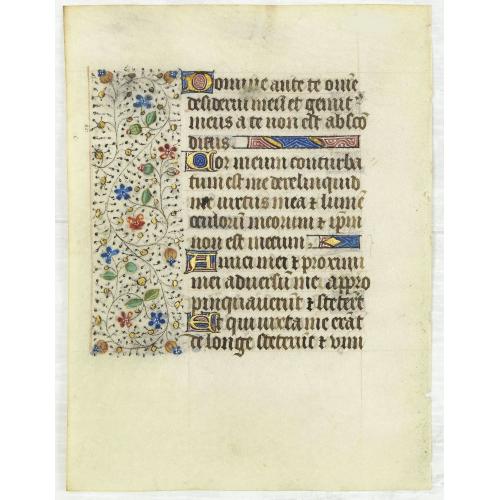 Domine ante te om̄e
desideriū meū et gemit⁹
meus a te non est absco̅
ditus
Cor meum conturba
tum est me dereliquid
me virtus mea ⁊ lumē
oculorū meorum ⁊ ip̄m
non est mecum
Amici mei ⁊ proximi
mei adversū me appro
pinquaverūt ⁊ steterūt
Et qui iuxta me erāt
de longe steterūt ⁊ vim